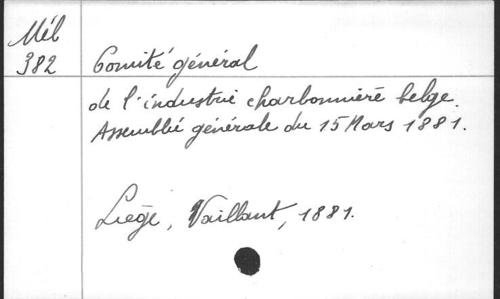 Mél
382
Comité général
de l'industrie charbonnière belge.
Assemblée générale du 15 Mars 1881.
Liège, Vaillant, 1881.